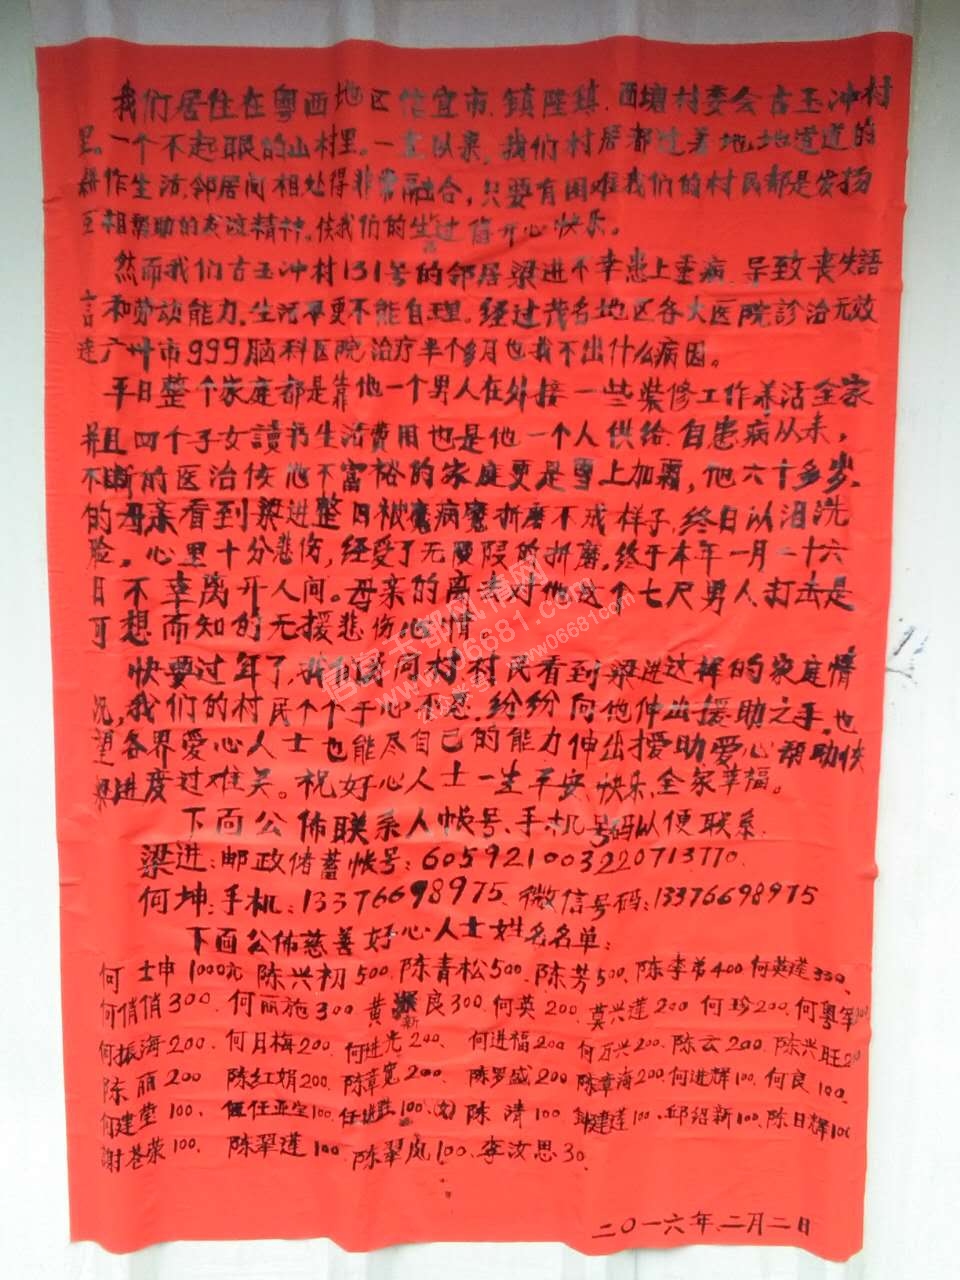 我们居住在粤西地区信宜市、镇隆镇、西塘村委会古玉冲村
里。一个不起眼的山村里。一直以来，我们村居都过着地地道道的
耕作生活，邻居间相处得非常融合，只要有困难我们的村民都是发扬
互相帮助的友谊精神。使我们的生过得开心快乐。
然而我们古玉冲村131号的邻居梁进不幸患上重病，导致丧失語
言和劳动能力，生活更不能自理。经过茂名地区各大医院診治无效
连广州市999脑科医院治疗半个多月也找不出什么病因。
平日整个家庭都是靠他一个男人在外接一些装修工作养活全家
并且四个子女讀书生活费用也是他一个人供给，自患病以来，
不断的医治使他不富裕的家庭更是雪上加霜，他六十多岁
的母亲看到梁进整日被病魔折磨不成样子，终日以泪洗
脸，心里十分悲伤，经受了无限的折磨，终于本年一月二十六
日不幸离开人间。母亲的离去对他这个七尺男人打击是
可想而知的无援悲伤心情。
快要过年了，我们同村村民看到梁进这样的家庭情
况，我们的村民个个于心不忍，纷纷向他伸出援助之手，也
望各界爱心人士也能尽自己的能力伸出援助爱心帮助快
梁进度过难关。祝好心人士一生平安，快乐，全家幸福。
下面公佈联系人帐号、手机号码以便联系
梁进：邮政储蓄帐号：605921003220713770
何坤：手机：13376698975、微信号码：13376698975
下面公佈慈善好心人士姓名名单：
何士坤1000元 陈兴初500、陈青松500、陈芳500、陈李弟400 何英莲330、
何俏俏300、何丽施300 黄新良300、何英200、莫兴莲200 何珍200、何粤军200
何振海200、何月梅200、何进光200、何进福200 何万兴200、陈云200、陈兴旺200
陈丽200 陈红娟200、陈章宽200、陈罗盛200 陈章海200、何进辉100、何良100、
何建堂100、任亚宝100、任进胜100、陈清100 建莲100、邱绍新100、陈日辉100
謝苍荣100、陈翠莲100、陈翠凤100、李汝思30
二〇一六年、二月二日
信宜玉都风情网
www.06681.com
公众号：www06681com